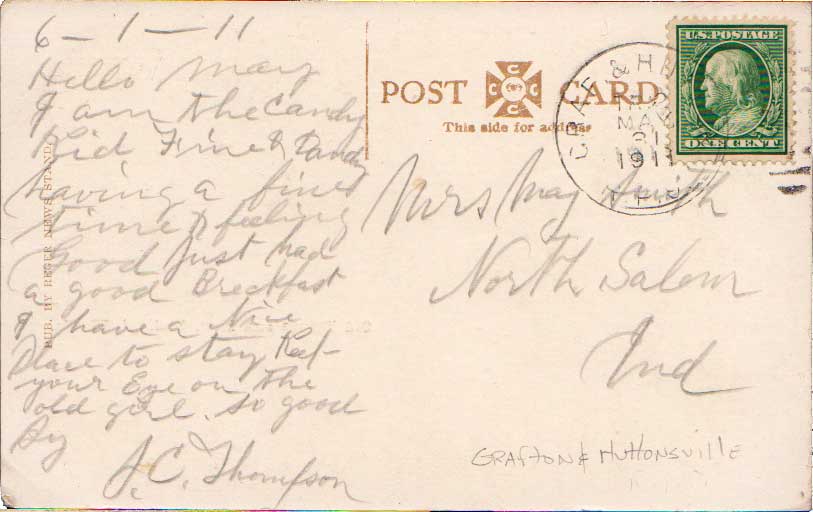 6-1-11
Hello May
I am the Candy
Kid Fine & Dandy
having a fine
time & feeling
Good just had
a good Breckfast
I have a Nice
Place to stay Keep
your Eye on the
old girl. so good
By
J.C. Thompson
PUB. BY REGER NEWS STAND.
POST CARD
This side for address
C C C C
GRAF. & H
MAY
31
1911
R.P.O.
U.S. POSTAGE
ONE CENT
Mrs May Smith
North Salem
Ind
GRAFTON & HUTTONSVILLE